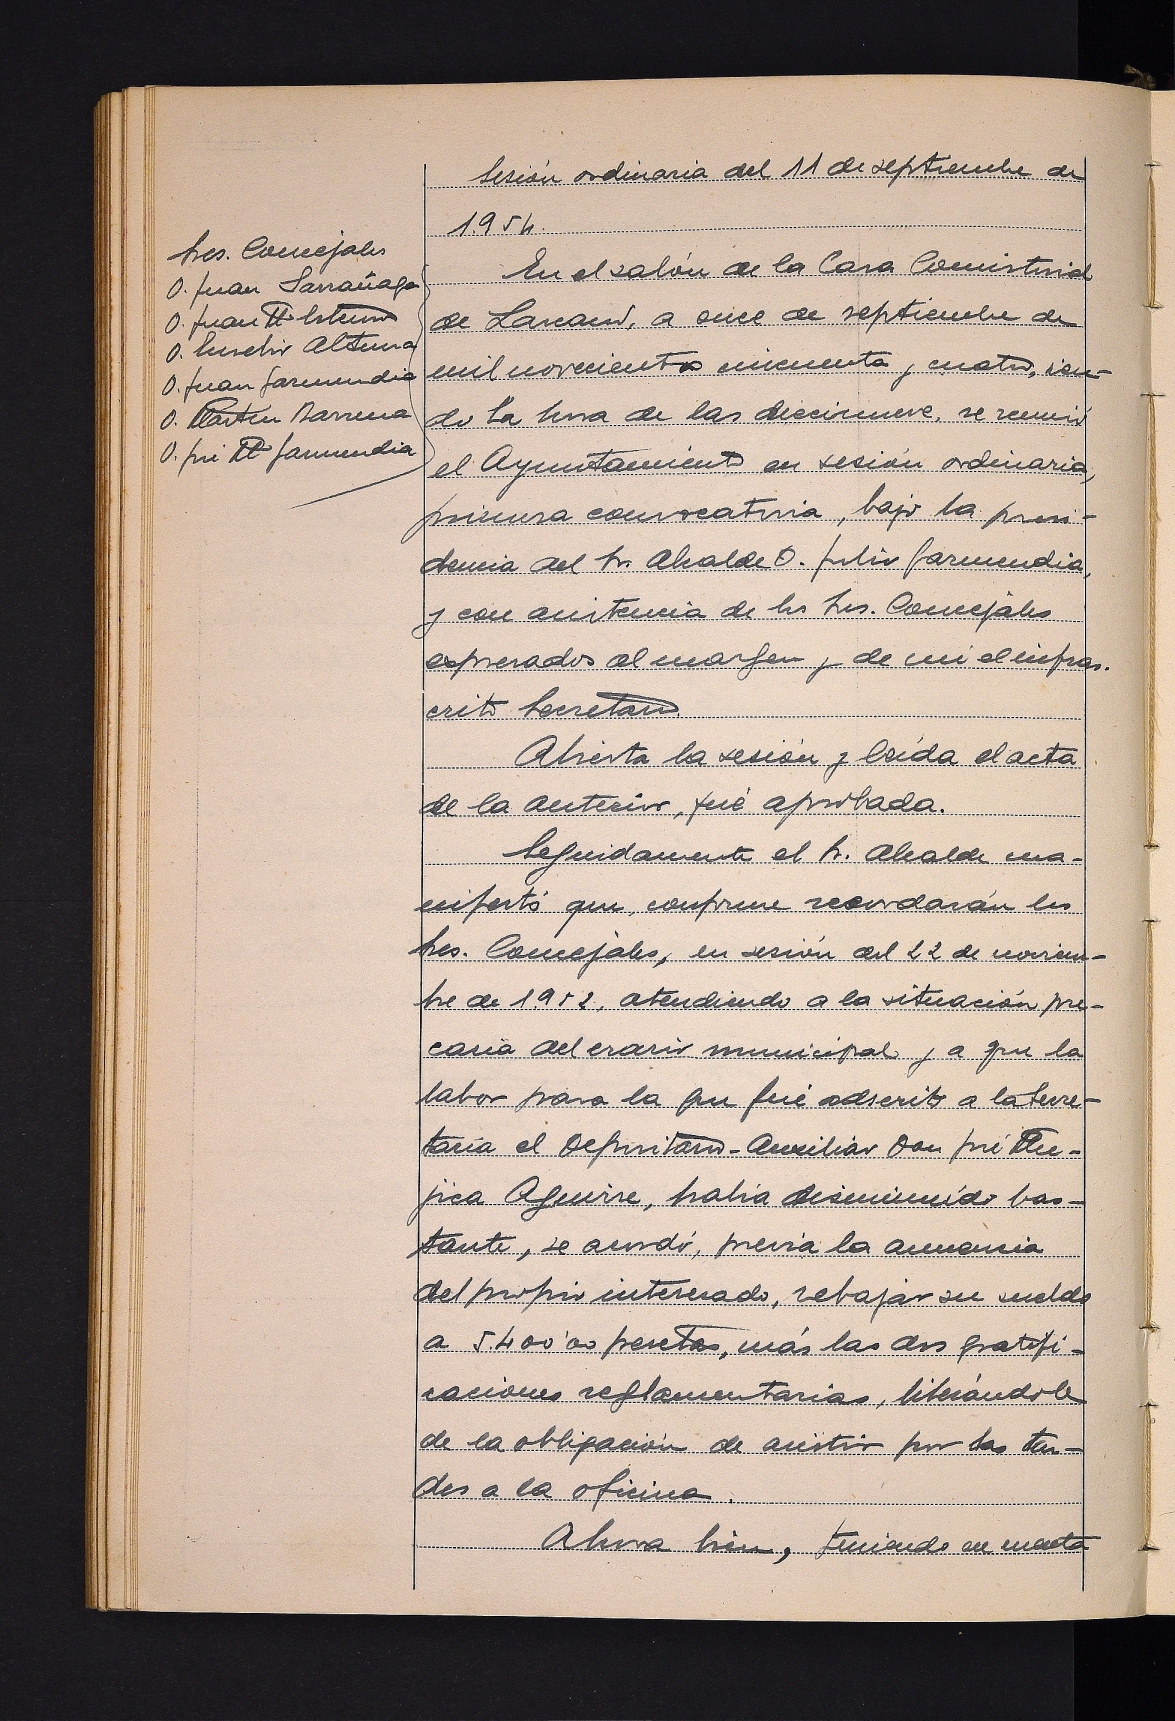 Sesión ordinaria del 11 de septiembre de
1954.
Sres. Concejales
D. Juan Larrañaga
D. Juan Mª
D. Eusebio Altuna
D. Juan Garmendia
D. Martín Barrena
D. José Mª Garmendia
En el salón de la Casa Consistorial
de Lazcano, a once de septiembre de
mil novecientos cincuenta y cuatro, sien-
do la hora de las diecinueve, se reunió
el Ayuntamiento en sesión ordinaria,
primera convocatoria, bajo la presi-
dencia del Sr. Alcalde D. Julio Garmendia,
y con asistencia de los Sres. Concejales
expresados al margen y de mi el infras-
crito Secretario.
Abierta la sesión y leída el acta
de la anterior, fué aprobada.
Seguidamente el Sr. Alcalde ma-
nifestó que, conforme recordarán los
Sres. Concejales, en sesión del 22 de noviem-
bre de 1952, atendiendo a la situación pre-
caria del erario municipal y a que la
labor para la que fué adscrito a la Secre-
taría el Depositario-Auxiliar Don José Mu-
jica Aguirre, había disminuido bas-
tante, se acordó, previa la anuencia
del propio interesado, rebajar su sueldo
a 5.400'00 pesetas, más las dos gratifi-
caciones reglamentarias, liberándole
de la obligación de asistir por las tar-
des a la oficina.
Ahora bien, teniendo en cuenta